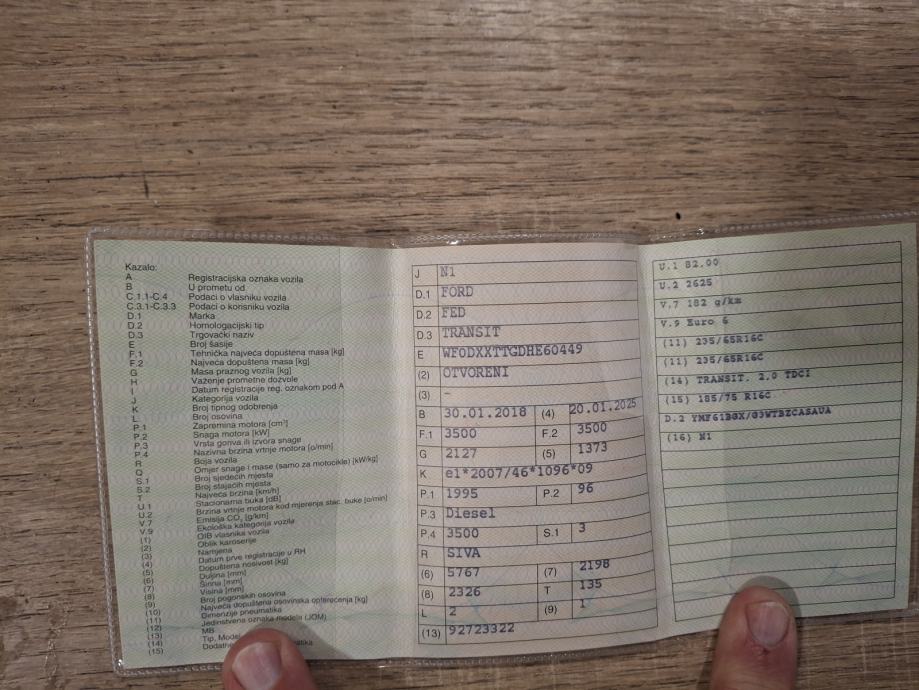 Kazalo:
A Registracijska oznaka vozila
B U prometu od
C.1.1-C.4 Podaci o vlasniku vozila
C.3.1-C.3.3 Podaci o korisniku vozila
D.1 Marka
D.2 Homologacijski tip
D.3 Trgovački naziv
E Broj šasije
F.1 Tehnička najveća dopuštena masa [kg]
F.2 Najveća dopuštena masa [kg]
G Masa praznog vozila [kg]
H Važenje prometne dozvole
I Datum registracije reg. oznakom pod A
J Kategorija vozila
K Broj tipnog odobrenja
L Broj osovina
P.1 Zapremina motora [cm³]
P.2 Snaga motora [kW]
P.3 Vrsta goriva ili izvora snage
P.4 Nazivna brzina vrtnje motora [o/min]
R Boja vozila
Q Omjer snage i mase (samo za motocikle) [kW/kg]
S.1 Broj sjedećih mjesta
S.2 Broj stajaćih mjesta
T Najveća brzina [km/h]
U.1 Stacionarna buka [dB]
U.2 Brzina vrtnje motora kod mjerenja stac. buke [o/min]
V.7 Emisija CO₂ [g/km]
V.9 Ekološka kategorija vozila
(1) OIB vlasnika vozila
(2) Oblik karoserije
(3) Namjena
(4) Datum prve registracije u RH
(5) Dopuštena nosivost [kg]
(6) Duljina [mm]
(7) Širina [mm]
(8) Visina [mm]
(9) Broj pogonskih osovina
(10) Najveća dopuštena osovinska opterećenja [kg]
(11) Dimenzije pneumatika
(12) Jedinstvena oznaka modela (JOM)
(13) MB
(14) Tip, Model
(15)
J N1
D.1 FORD
D.2 FED
D.3 TRANSIT
E WF0DXXTTGDHE60449
(2) OTVORENI
(3) -
B 30.01.2018 (4) 20.01.2025
F.1 3500 F.2 3500
G 2127 (5) 1373
K e1*2007/46*1096*09
P.1 1995 P.2 96
P.3 Diesel
P.4 3500 S.1 3
R SIVA
(6) 5767 (7) 2198
(8) 2326 T 135
L 2 (9) 1
(13) 92723322
U.1 82.00
U.2 2625
V.7 182 g/km
V.9 Euro 6
(11) 235/65R16C
(11) 235/65R16C
(14) TRANSIT. 2.0 TDCI
(15) 185/75 R16C
D.2
(16) N1